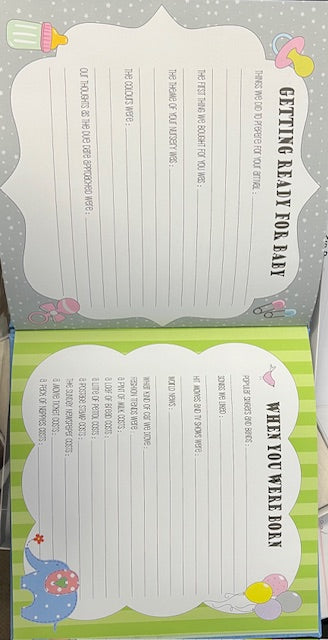 GETTING READY FOR BABY
THINGS WE DID TO PREPARE FOR YOUR ARRIVAL :
THE FIRST THING WE BOUGHT FOR YOU WAS :
THE THEME OF YOUR NURSERY WAS :
THE COLOURS WERE :
OUR THOUGHTS AS THE DUE DATE APPROACHED WERE :
WHEN YOU WERE BORN
POPULAR SINGERS AND BANDS :
SONGS WE LIKED :
HIT MOVIES AND TV SHOWS WERE :
WORLD NEWS :
WHAT KIND OF CAR WE DROVE :
FASHION TRENDS WERE :
A PINT OF MILK COSTS :
A LOAF OF BREAD COSTS :
A LITRE OF PETROL COSTS :
A POSTAGE STAMP COSTS :
THE SUNDAY NEWSPAPER COSTS :
A MOVIE TICKET COSTS :
A PACK OF NAPPIES COSTS :